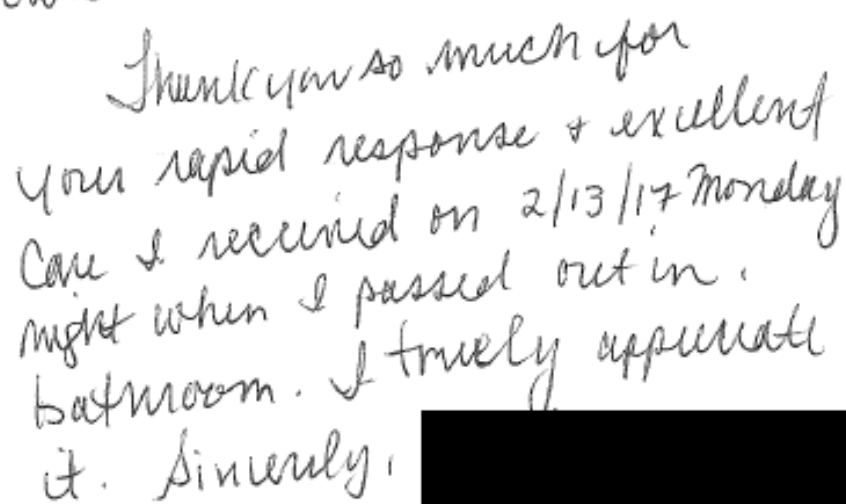 Thank you so much for
your rapid response + excellent
care I received on 2/13/17 Monday
night when I passed out in
bathroom. I truely appreciate
it. Sincerely,